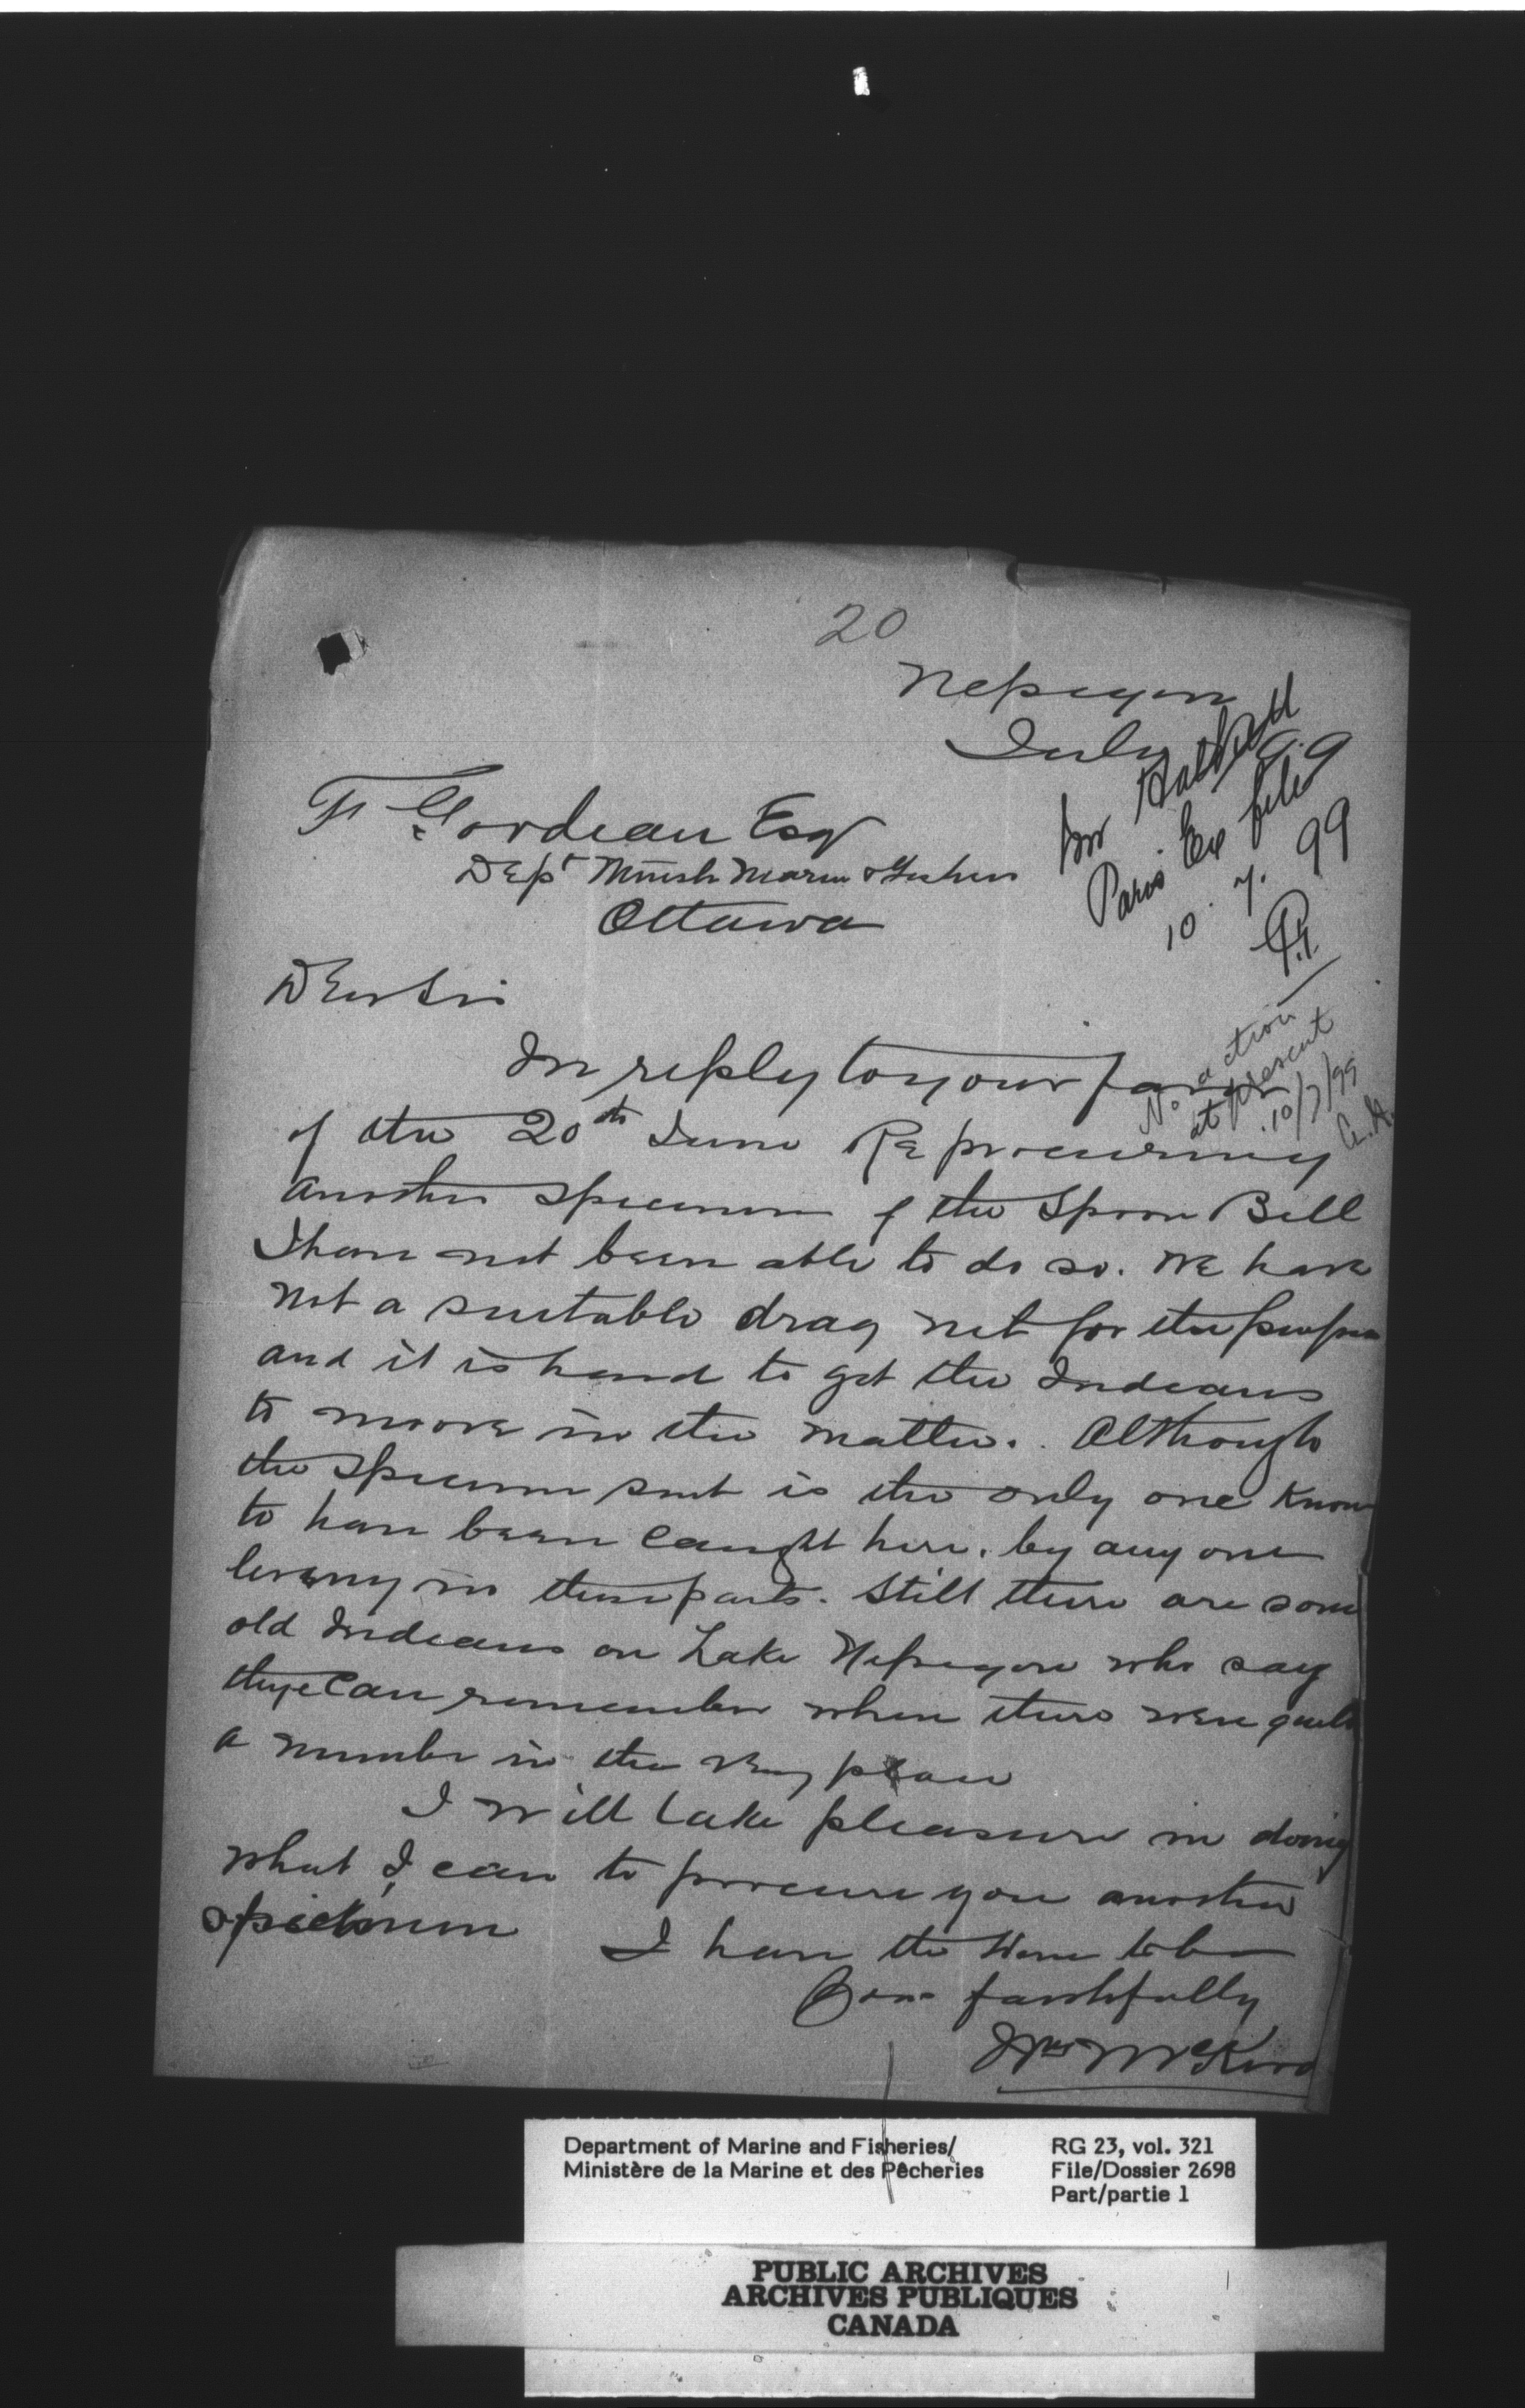 20
Nepigon
July 99
Mr Halkett
Paris Ex file
10. 7. 99
F Gordeau Esq
Dept Minister Marine & Fisheries
Ottawa
No action
at present
10/7/99
A.H.
Dear Sir
In reply to your favor
of the 20th June Re procuring
another specimen of the Spoon Bill
I have not been able to do so. We have
not a suitable drag net for the purpose
and it is hard to get the Indians
to move in the matter. Although
the specimen sent is the only one known
to have been caught here, by any one
living in these parts. Still there are some
old Indians on Lake Nepigon who say
they can remember when there were quite
a number in the Bay place
I will take pleasure in doing
what I can to procure you another
specimen
I have the Honor to be
Yours faithfully
Wm McKirdy
Department of Marine and Fisheries/
Ministère de la Marine et des Pêcheries
RG 23, vol. 321
File/Dossier 2698
Part/partie 1
PUBLIC ARCHIVES
ARCHIVES PUBLIQUES
CANADA